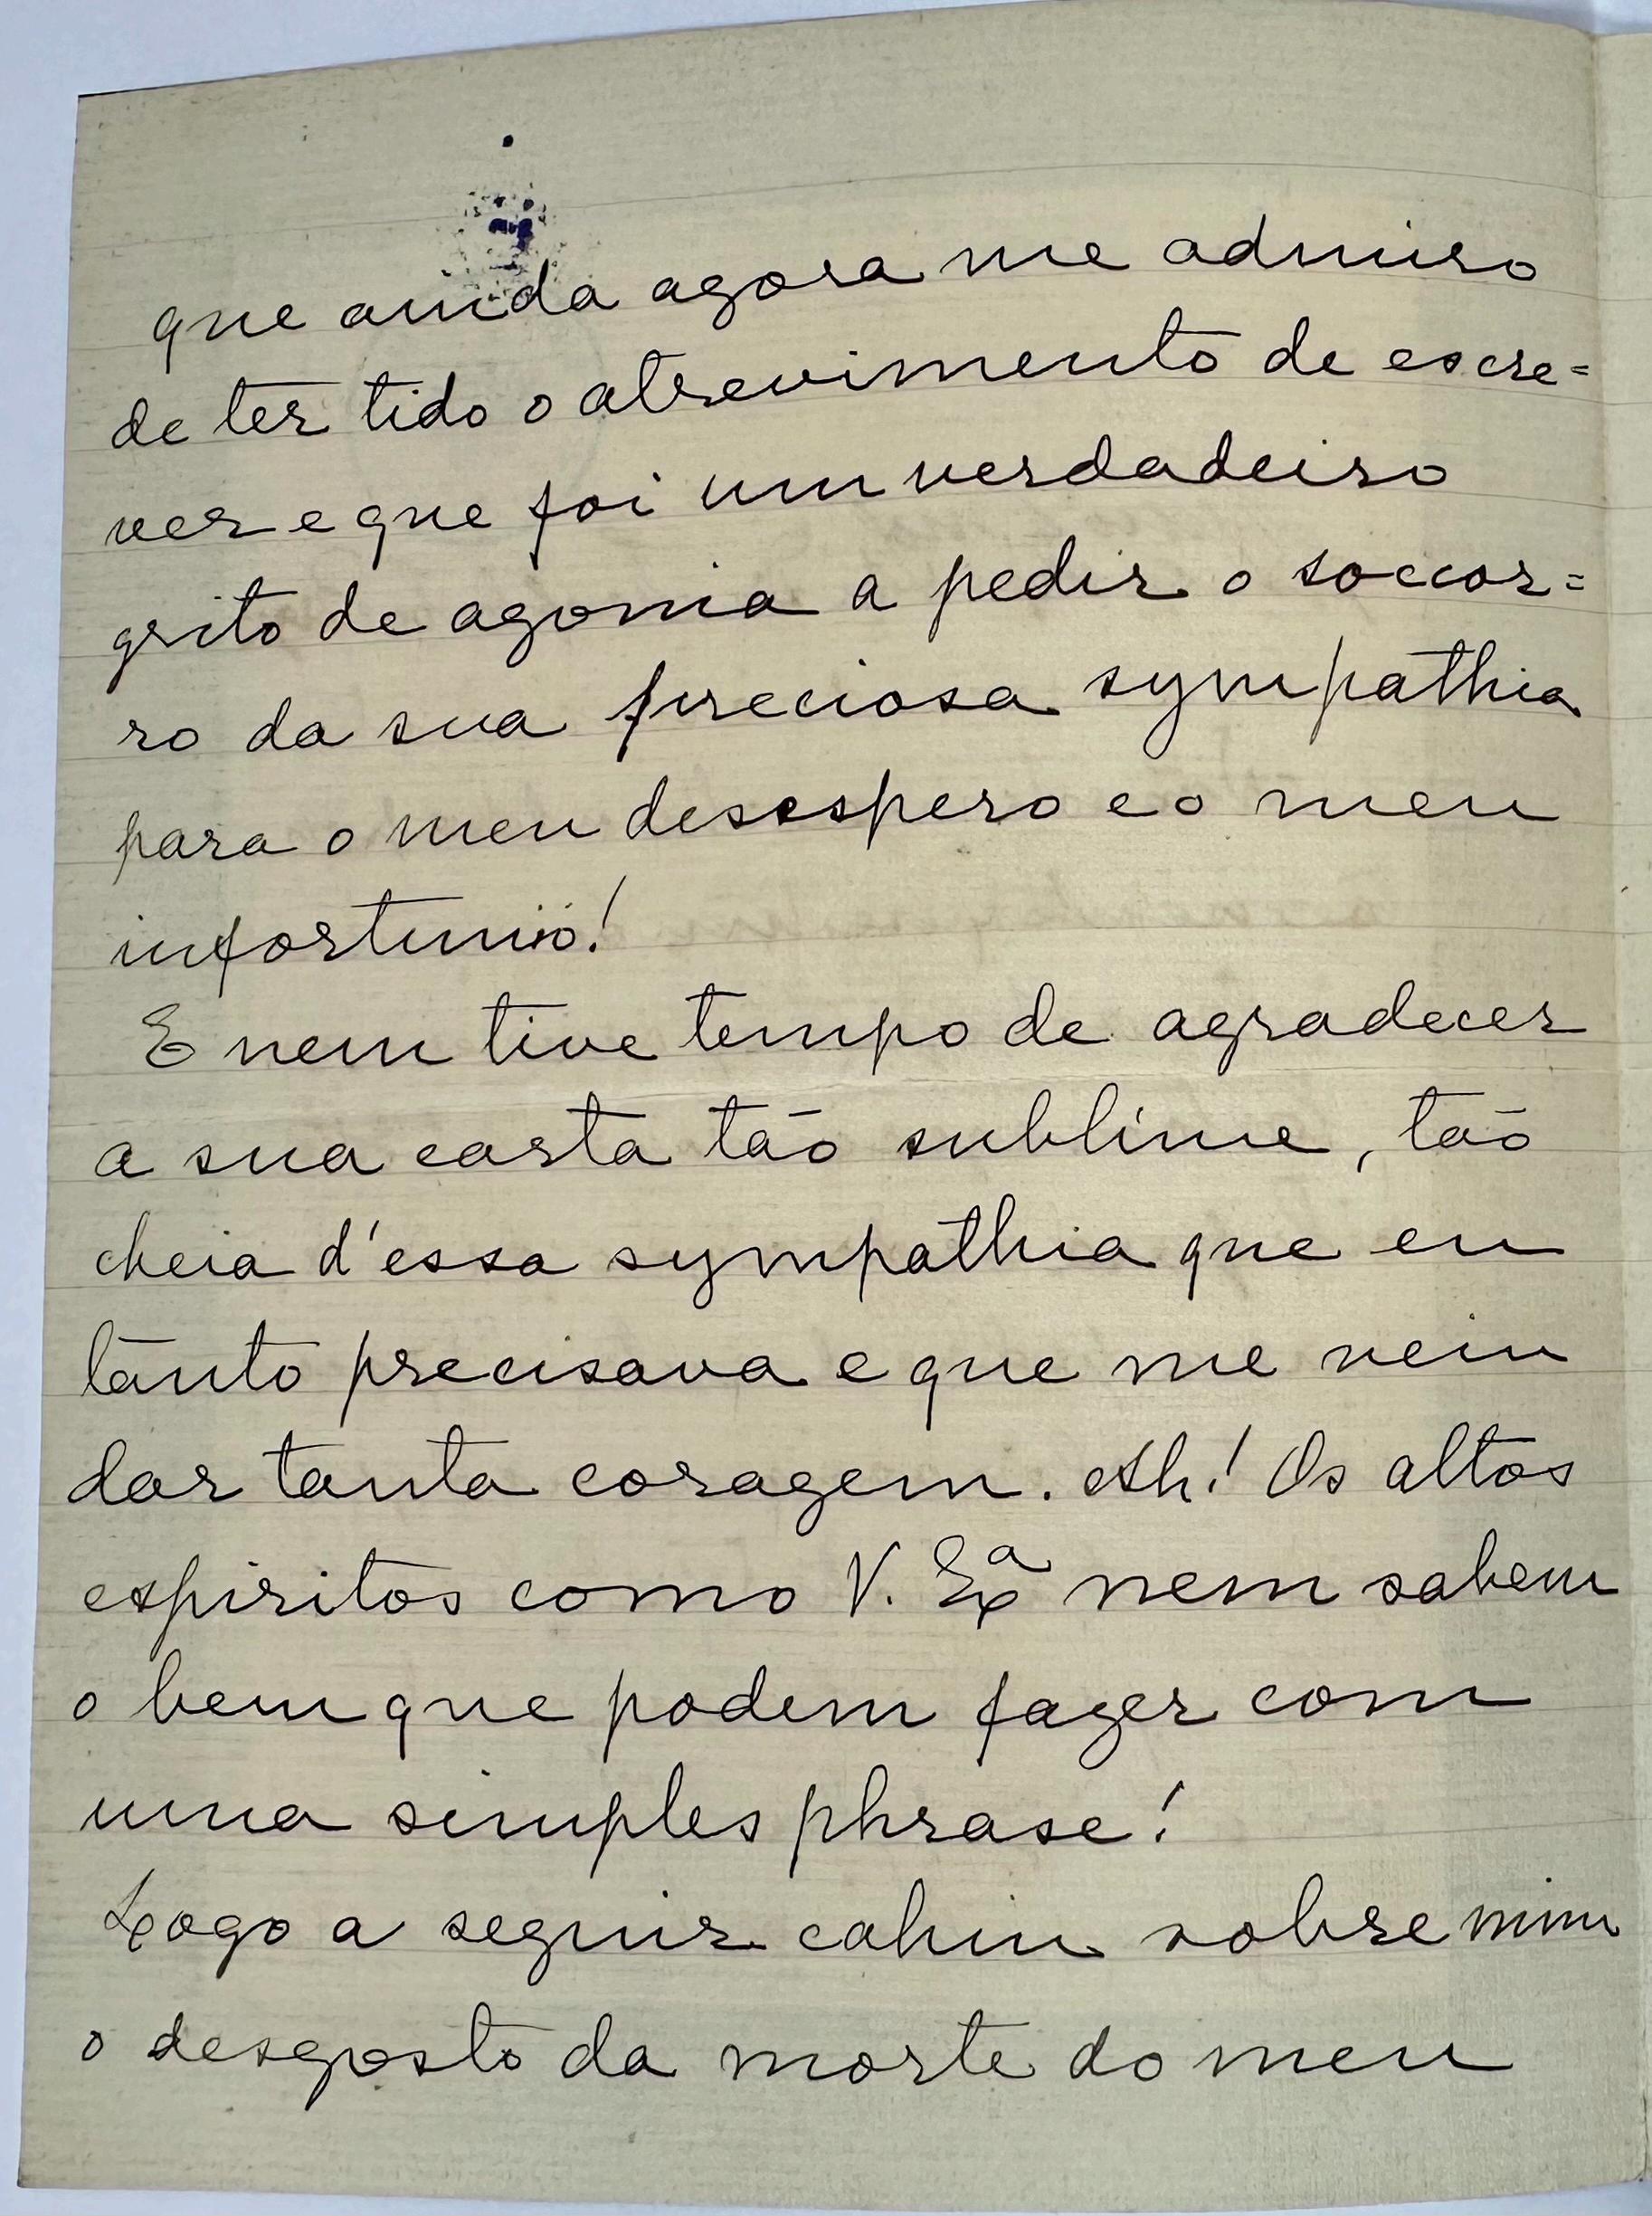 que ainda agora me admiro
de ter tido o atrevimento de escre=
ver e que foi um verdadeiro
grito de agonia a pedir o soccor=
ro da sua preciosa sympathia
para o meu desespero e o meu
infortunio!
E nem tive tempo de agradecer
a sua carta tão sublime, tão
cheia d'essa sympathia que eu
tanto precisava e que me veiu
dar tanta coragem. Ah! Os altos
espiritos como V. Exª nem sabem
o bem que podem fazer com
uma simples phrase!
Logo a seguir cahiu sobre mim
o desgosto da morte do meu